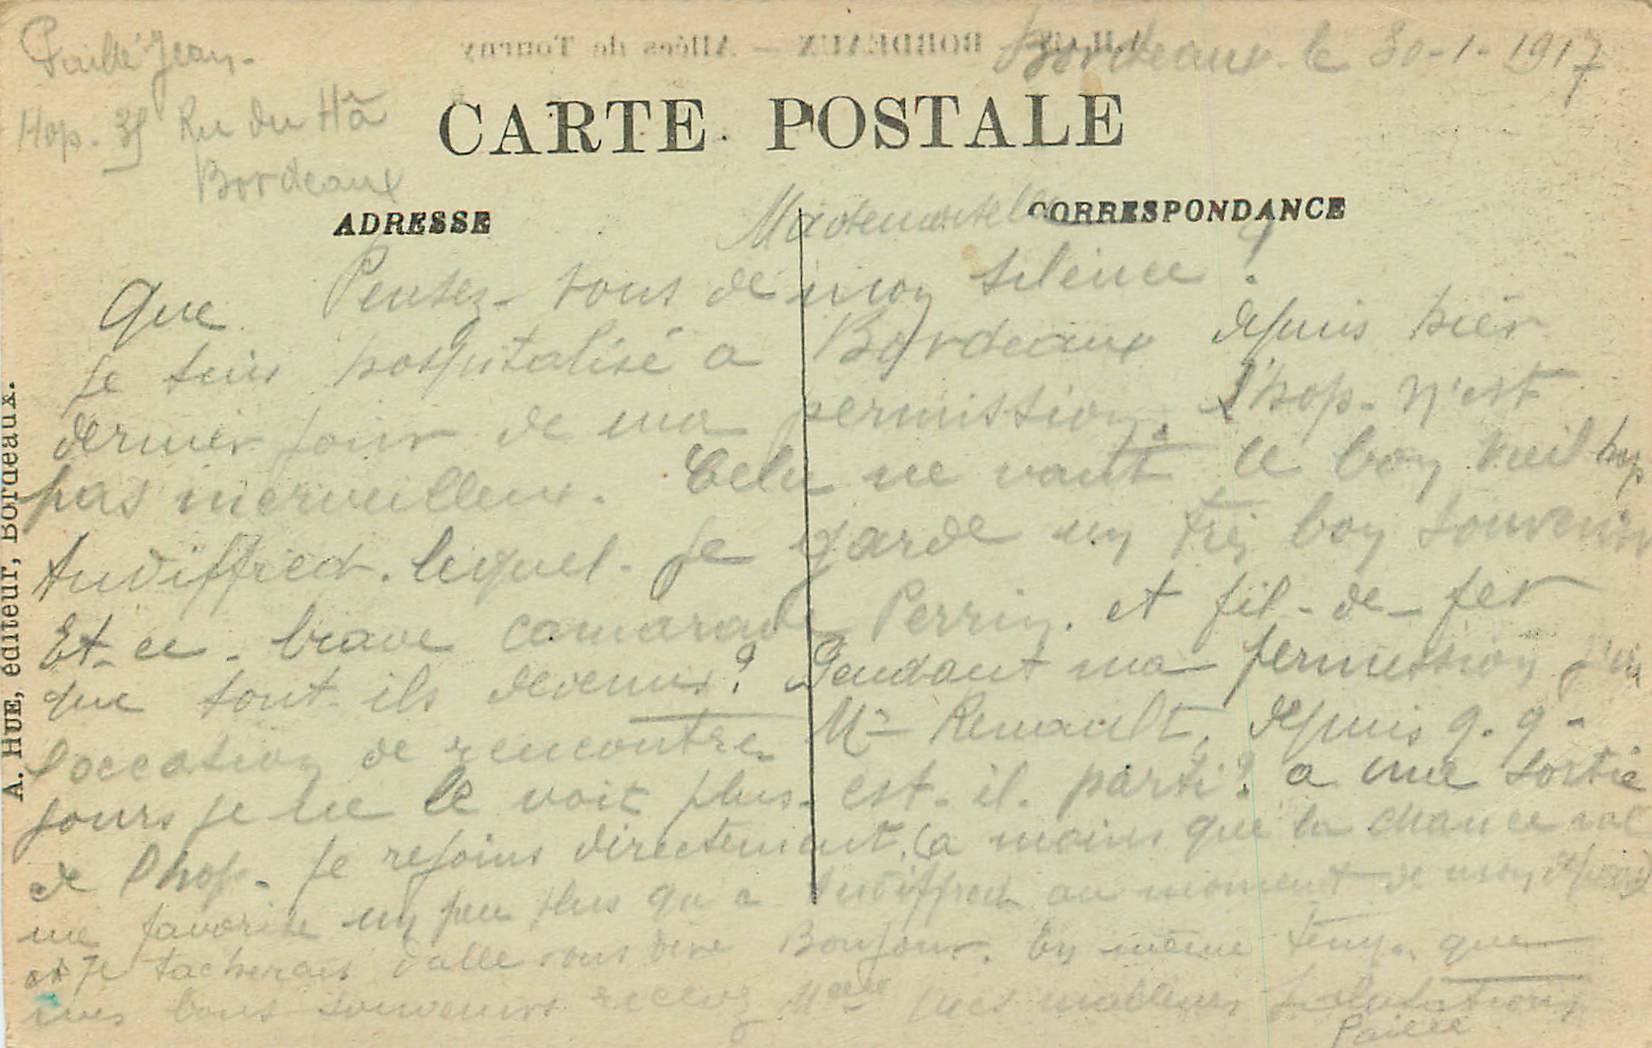 Paillé Jean.
Hop. 35 Rue du Hâ
Bordeaux
Bordeaux. le 30-1-1917
BORDEAUX — Allées de Tourny
CARTE POSTALE
ADRESSE
CORRESPONDANCE
A. HUE, éditeur, Bordeaux.
Mademoiselle
Que Pensez-vous de mon silence ?
Je suis hospitalisé a Bordeaux depuis hier
dernier jour de ma permission. L'hop. n'est
pas merveilleux. Cela ne vaut le bon vieil hop
Audiffred. lequel. je garde un très bon souvenir
Et-ce. brave camarade Perrin. et fil-de-fer
que sont-ils devenus ? Pendant ma permission j'eu
l'occation de rencontrer Mr Renault, depuis q.q-
jours je ne le voit plus. est-il. parti ? a ma sortie
de l'hop. je rejoins directement. (a moins que la chance
me favorise un peu plus qu'a Audiffred au moment de mon
je tacherais d'alle vous dire Bonjour. En même temps. que
mes bons souvenirs recevez Melle mes meilleures salutations
Paillé